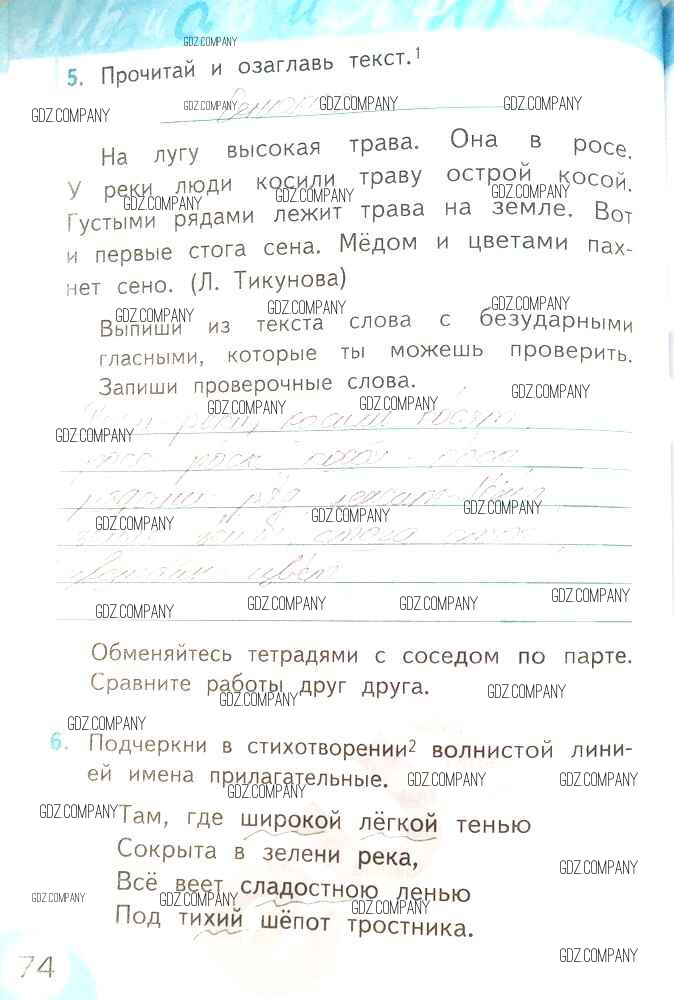 GDZ.COMPANY
5. Прочитай и озаглавь текст.¹
GDZ.COMPANY GDZ.COMPANY GDZ.COMPANY GDZ.COMPANY
На лугу высокая трава. Она в росе.
У реки люди косили траву острой косой.
GDZ.COMPANY GDZ.COMPANY GDZ.COMPANY
Густыми рядами лежит трава на земле. Вот
и первые стога сена. Мёдом и цветами пах-
нет сено. (Л. Тикунова)
GDZ.COMPANY GDZ.COMPANY GDZ.COMPANY
Выпиши из текста слова с безударными
гласными, которые ты можешь проверить.
Запиши проверочные слова.
GDZ.COMPANY GDZ.COMPANY GDZ.COMPANY
косили
GDZ.COMPANY
рядами ряд
GDZ.COMPANY GDZ.COMPANY GDZ.COMPANY
стога
цвет
GDZ.COMPANY GDZ.COMPANY GDZ.COMPANY GDZ.COMPANY
Обменяйтесь тетрадями с соседом по парте.
Сравните работы друг друга.
GDZ.COMPANY GDZ.COMPANY
GDZ.COMPANY
6. Подчеркни в стихотворении² волнистой лини-
ей имена прилагательные.
GDZ.COMPANY GDZ.COMPANY GDZ.COMPANY
GDZ.COMPANY
Там, где широкой лёгкой тенью
Сокрыта в зелени река,
GDZ.COMPANY
Всё веет сладостною ленью
GDZ.COMPANY GDZ.COMPANY GDZ.COMPANY
Под тихий шёпот тростника.
GDZ.COMPANY
74